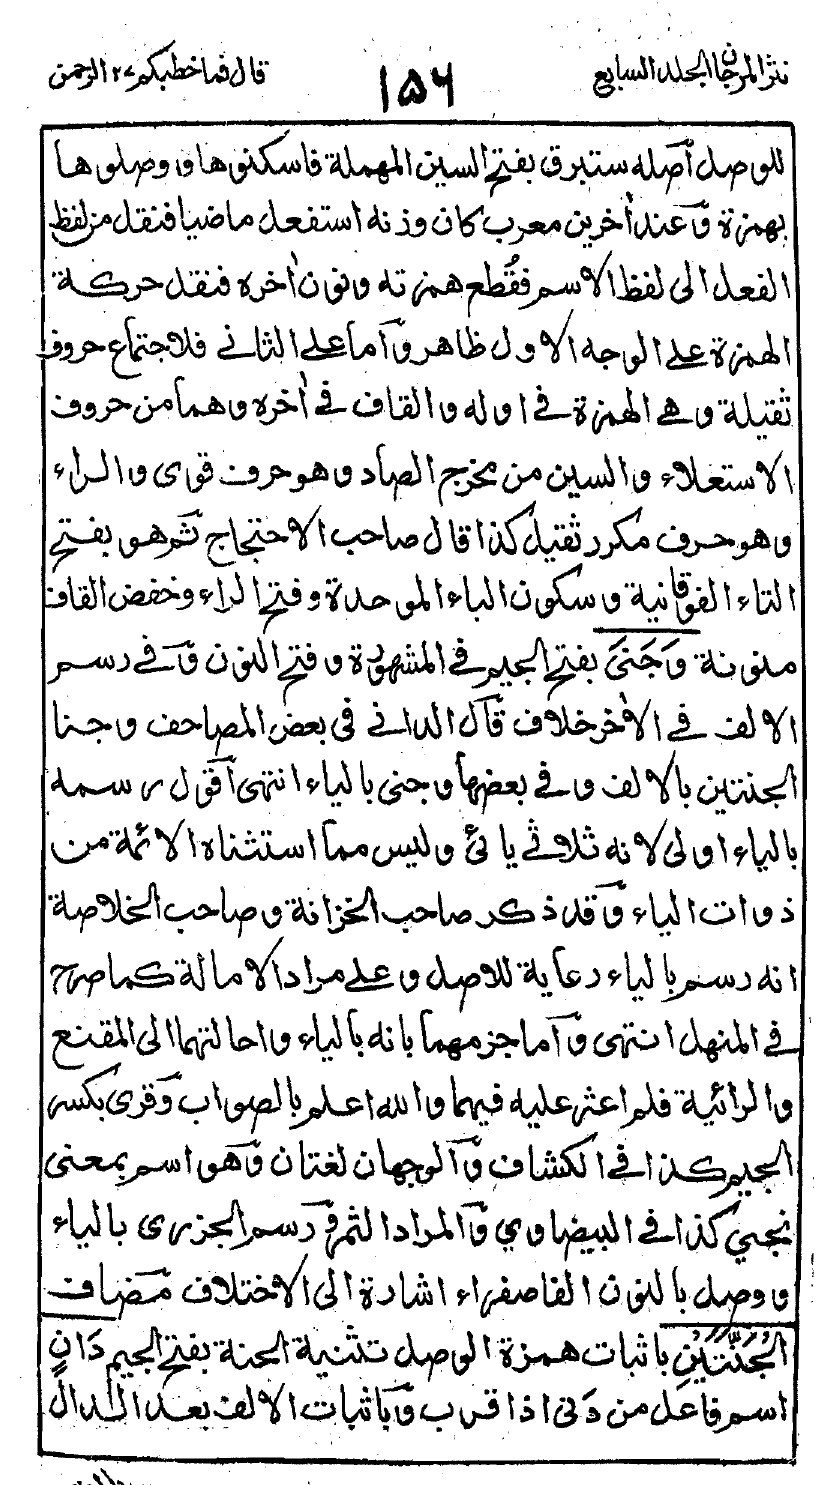 نثر المرجان الجلد السابع
١٥٦
قال فما خطبكم ٢٧ الرحمن
للوصل أصله ستبرق بفتح السين المهملة فاسكنوها ووصلوها
بهمزة وعند اٰخرين معرب كان وزنه استفعل ماضيا فنقل من لفظ
الفعل الى لفظ الاسم فقُطع همزته ونون اٰخره فنقل حركة
الهمزة على الوجه الاول ظاهر وآما على الثاني فلاجتماع حروف
ثقيلة وهي الهمزة في اوله والقاف في اٰخره وهما من حروف
الاستعلاء والسين من مخرج الصاد وهو حرف قوى والراء
وهو حرف مكرر ثقيل كذا قال صاحب الاحتجاج ثم هو بفتح
التاء الفوقانية وسكون الباء الموحدة وفتح الراء وخفض القاف
منونة وَجَنَى بفتح الجيم في المشهورة وفتح النون وفي رسم
الالف في الاٰخر خلاف قال الداني في بعض المصاحف وجنا
الجنتين بالالف وفي بعضها وجنى بالياء انتهى أقول رسمه
بالياء اولى لانه ثلاثي يائي وليس مما استثناه الائمة من
ذوات الياء وقد ذكر صاحب الخزانة وصاحب الخلاصة
انه رسم بالياء رعاية للاصل وعلى مراد الامالة كما صرح
في المنهل انتهى وآما جزمهما بانه بالياء واحالتهما الى المقنع
والرائية فلم اعثر عليه فيهما والله اعلم بالصواب وقرئ بكسر
الجيم كذا في الكشاف وآلوجهان لغتان وهو اسم بمعنى
مجني كذا في البيضاوي وآلمراد الثمر في رسم الجزرى بالياء
ووصل بالنون الفا صفراء اشارة الى الاختلاف مضاف
الْجَنَّتَيْنِ باثبات همزة الوصل تثنية الجنة بفتح الجيم دَانٍ
اسم فاعل من دَنى اذا قرب وباثبات الالف بعد الدال